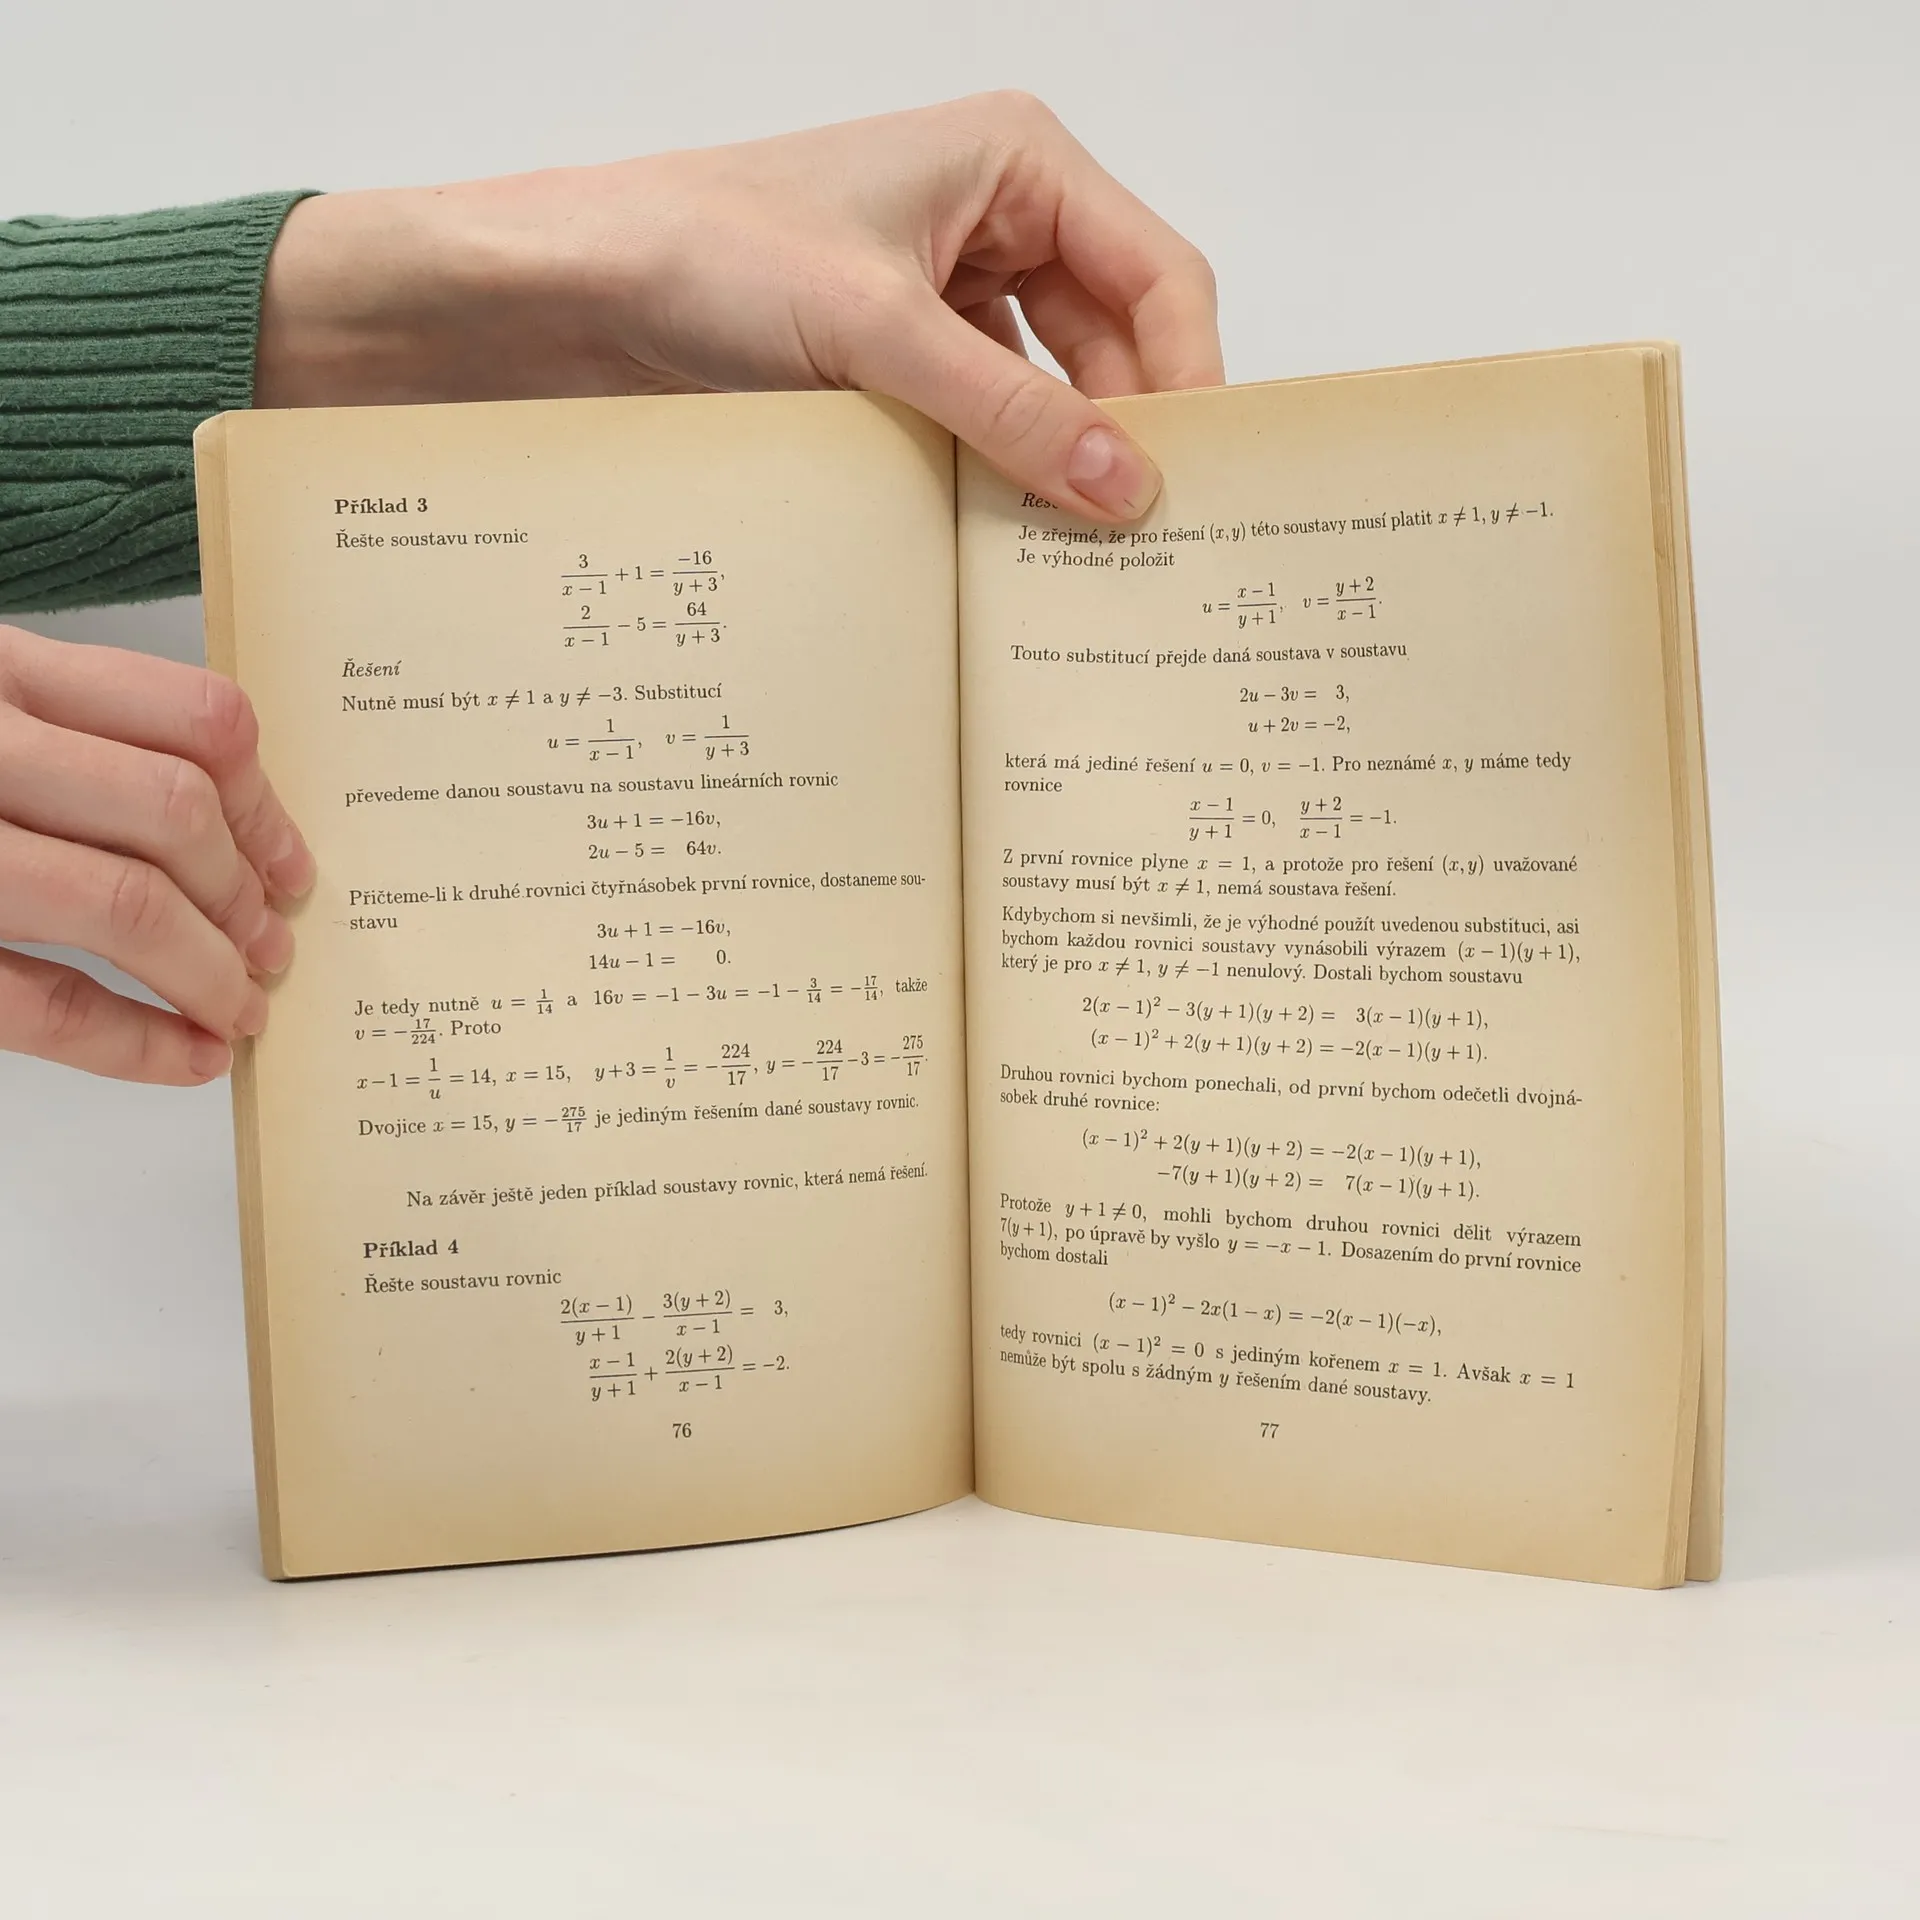 Příklad 3
Řešte soustavu rovnic
3/(x − 1) + 1 = −16/(y + 3),
2/(x − 1) − 5 = 64/(y + 3).
Řešení
Nutně musí být x ≠ 1 a y ≠ −3. Substitucí
u = 1/(x − 1), v = 1/(y + 3)
převedeme danou soustavu na soustavu lineárních rovnic
3u + 1 = −16v,
2u − 5 = 64v.
Přičteme-li k druhé rovnici čtyřnásobek první rovnice, dostaneme sou-
stavu
3u + 1 = −16v,
14u − 1 = 0.
Je tedy nutně u = 1/14 a 16v = −1 − 3u = −1 − 3/14 = −17/14, takže
v = −17/224. Proto
x − 1 = 1/u = 14, x = 15, y + 3 = 1/v = −224/17, y = −224/17 − 3 = −275/17.
Dvojice x = 15, y = −275/17 je jediným řešením dané soustavy rovnic.
Na závěr ještě jeden příklad soustavy rovnic, která nemá řešení.
Příklad 4
Řešte soustavu rovnic
2(x − 1)/(y + 1) − 3(y + 2)/(x − 1) = 3,
(x − 1)/(y + 1) + 2(y + 2)/(x − 1) = −2.
76
Je zřejmé, že pro řešení (x, y) této soustavy musí platit x ≠ 1, y ≠ −1.
Je výhodné položit
u = (x − 1)/(y + 1), v = (y + 2)/(x − 1).
Touto substitucí přejde daná soustava v soustavu
2u − 3v = 3,
u + 2v = −2,
která má jediné řešení u = 0, v = −1. Pro neznámé x, y máme tedy
rovnice
(x − 1)/(y + 1) = 0, (y + 2)/(x − 1) = −1.
Z první rovnice plyne x = 1, a protože pro řešení (x, y) uvažované
soustavy musí být x ≠ 1, nemá soustava řešení.
Kdybychom si nevšimli, že je výhodné použít uvedenou substituci, asi
bychom každou rovnici soustavy vynásobili výrazem (x − 1)(y + 1),
který je pro x ≠ 1, y ≠ −1 nenulový. Dostali bychom soustavu
2(x − 1)² − 3(y + 1)(y + 2) = 3(x − 1)(y + 1),
(x − 1)² + 2(y + 1)(y + 2) = −2(x − 1)(y + 1).
Druhou rovnici bychom ponechali, od první bychom odečetli dvojná-
sobek druhé rovnice:
(x − 1)² + 2(y + 1)(y + 2) = −2(x − 1)(y + 1),
−7(y + 1)(y + 2) = 7(x − 1)(y + 1).
Protože y + 1 ≠ 0, mohli bychom druhou rovnici dělit výrazem
7(y + 1), po úpravě by vyšlo y = −x − 1. Dosazením do první rovnice
bychom dostali
(x − 1)² − 2x(1 − x) = −2(x − 1)(−x),
tedy rovnici (x − 1)² = 0 s jediným kořenem x = 1. Avšak x = 1
nemůže být spolu s žádným y řešením dané soustavy.
77